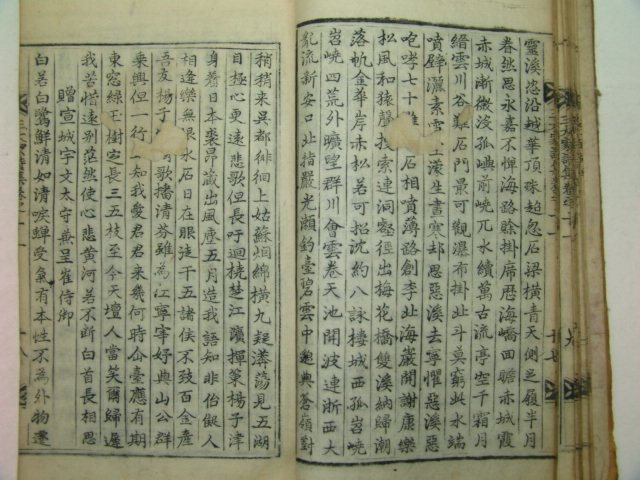 靈溪恣沿越華頂殊超忽石梁橫青天側足履半月
眷然思永嘉不憚海路賒掛席歷海嶠回瞻赤城霞
赤城漸微沒孤嶼前嶢兀水續萬古流亭空千霜月
縉雲川谷難石門最可觀瀑布掛北斗莫窮此水端
噴壁灑素雪空濛生晝寒却思惡溪去寧懼惡溪惡
咆哮七十灘石相噴薄路創李北海巖開謝康樂
松風和猿聲搜索連洞壑徑出梅花橋雙溪納歸潮
落帆金華岸赤松若可招沈約八詠樓城西孤岧嶢
岧嶢四荒外曠望群川會雲卷天地開波連浙西大
亂流新安口北指嚴光瀨釣臺碧雲中邈與蒼嶺對
稍稍來吳都徘徊上姑蘇烟綿橫九疑漭蕩見五湖
目極心更遠悲歌但長吁迴橈楚江濱揮策楊子津
身著日本裘昂藏出風塵五月造我語知非佁儗人
相逢樂無限水石日在眼徒干五諸侯不致百金產
吾友楊子歌播清芬雖為江寧宰好與山公群
乘興但一行知我愛君君來幾何時仙臺應有期
東窓綠玉樹定長三五枝至今天壇人當笑爾歸遲
我苦惜遠別茫然使心悲黃河若不斷白首長相思
贈宣城宇文太守兼呈崔侍御
白若白鷺鮮清如清唳蟬受氣有本性不為外物遷